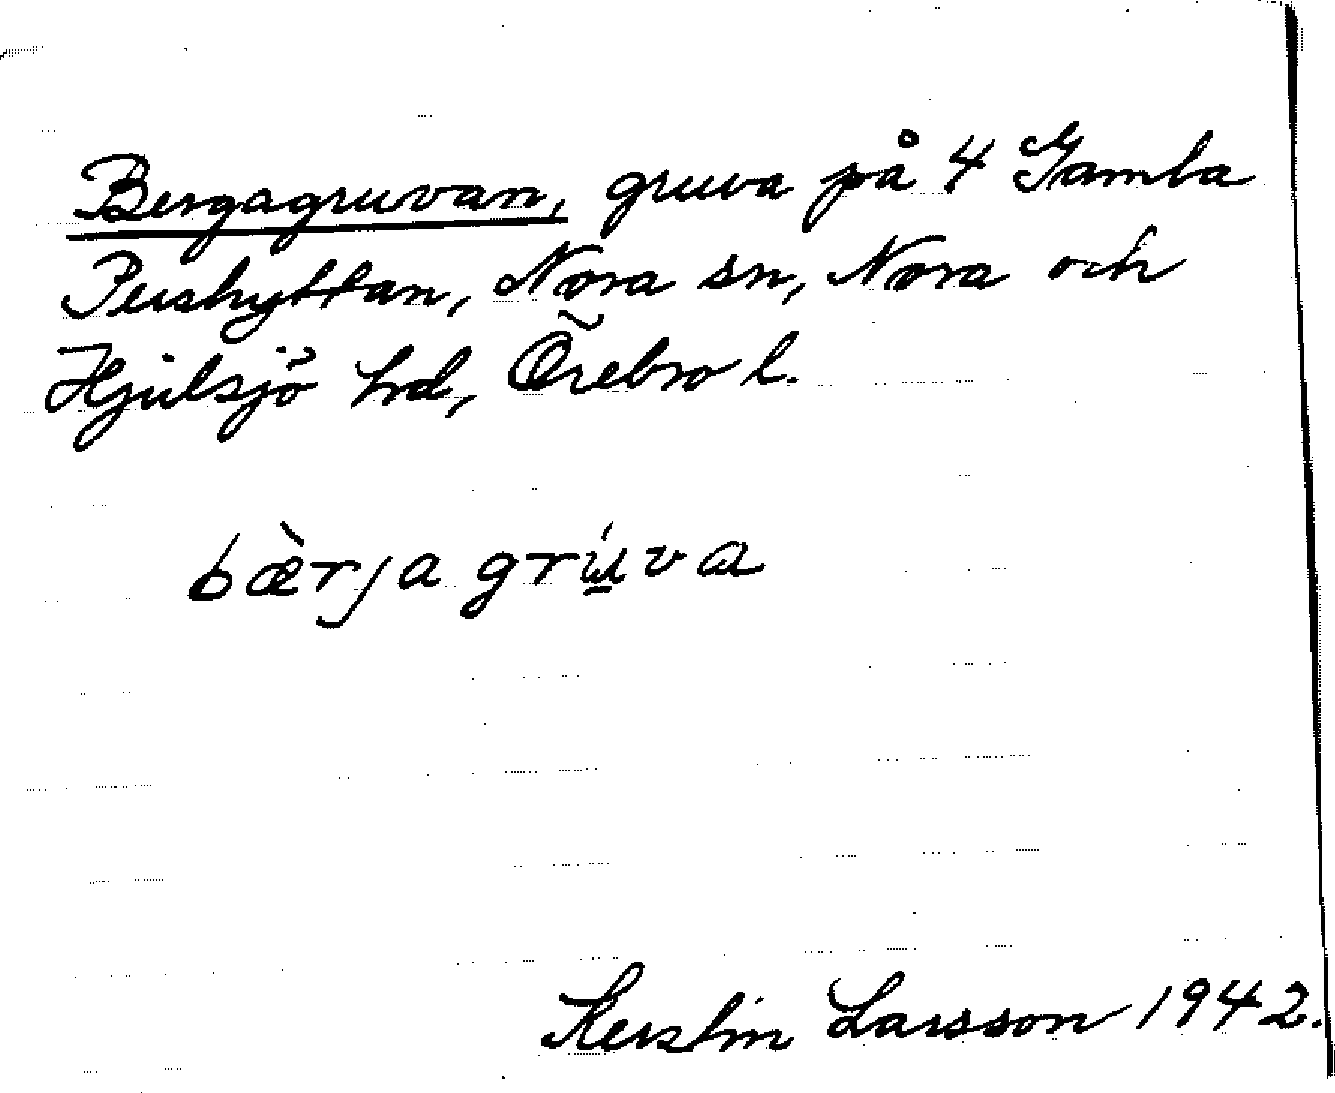 Bergagruvan, gruva på 4 Gamla
Pershyttan, Nora sn, Nora och
Hjulsjö hd, Örebro l.
bæ̀rjagrú̱va
Kerstin Larsson 1942.